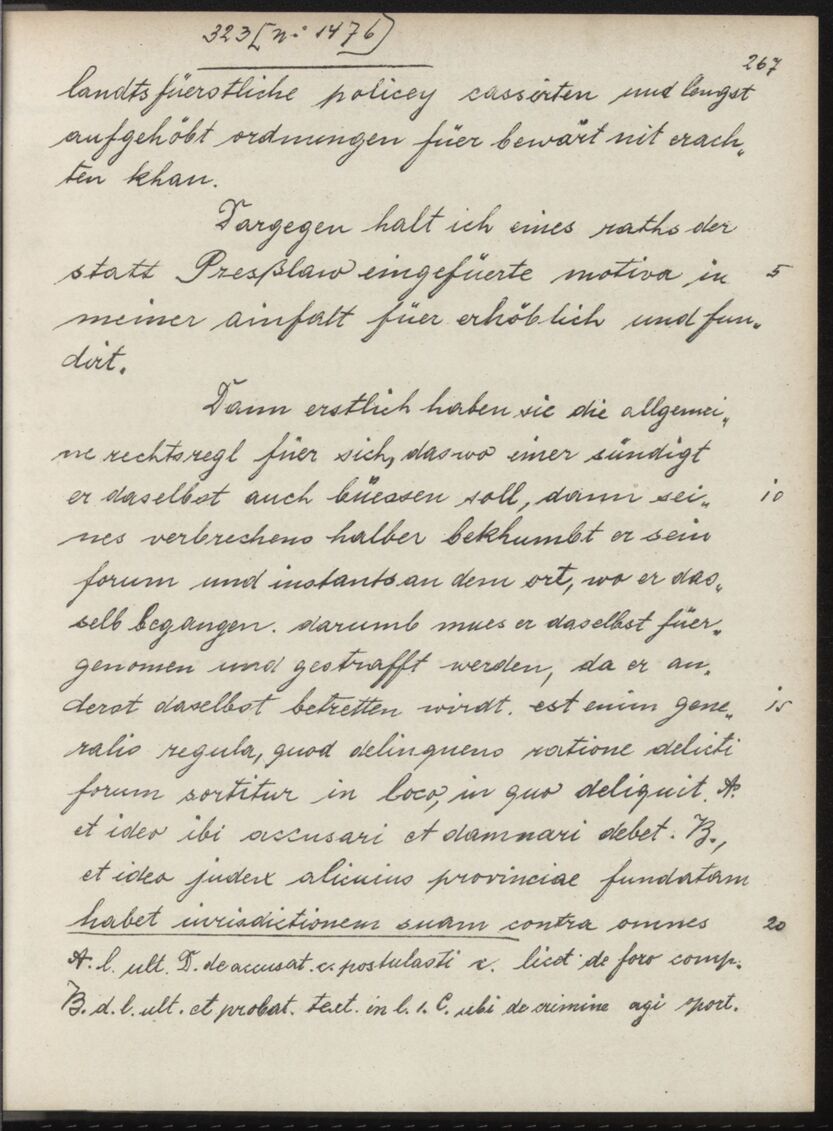 323 [n: 1476)
267
landtsfüerstliche policey cassirten und lengst
aufgehöbt ordnungen füer bewärt nit erach„
ten khan.
Dargegen halt ich eines raths der
statt Presßlaw eingefüerte motiva in 5
meiner ainfalt füer erhöblich und fun„
dirt.
Dann erstlich haben sie die allgemei„
ne rechtsregl füer sich, das wo einer sündigt
er daselbst auch büessen soll, dann sei„ 10
nes verbrechens halber bekhumbt er sein
forum und instants an dem ort, wo er das„
selb begangen. darumb mues er daselbst füer„
genomen und gestrafft werden, da er an„
derst daselbst betretten wirdt. est enim gene„ 15
ralis regula, quod delinquens ratione delicti
forum sortitur in loco, in quo deliquit. A.
et ideo ibi accusari et damnari debet. B.,
et ideo judex alicuius provinciae fundatam
habet iurisdictionem suam contra omnes 20
A. l. ult. D. de accusat. c. postulasti x. licet de foro comp.
B. d. l. ult. et probat. text. in l. 1. C. ubi de crimine agi oport.